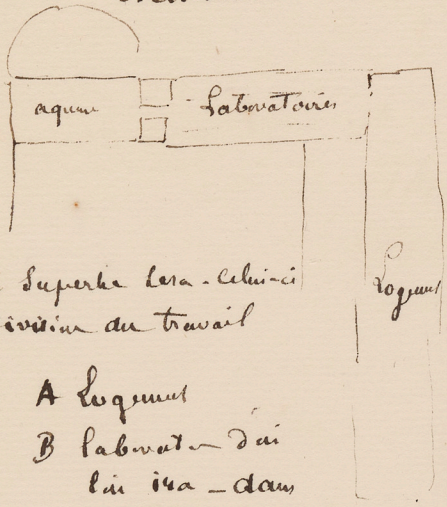 aqum
Laboratoires
Logement
superbe sera - celui-ci
ivision du travail
A Logement
B laborat d'où
l'on ira - dans